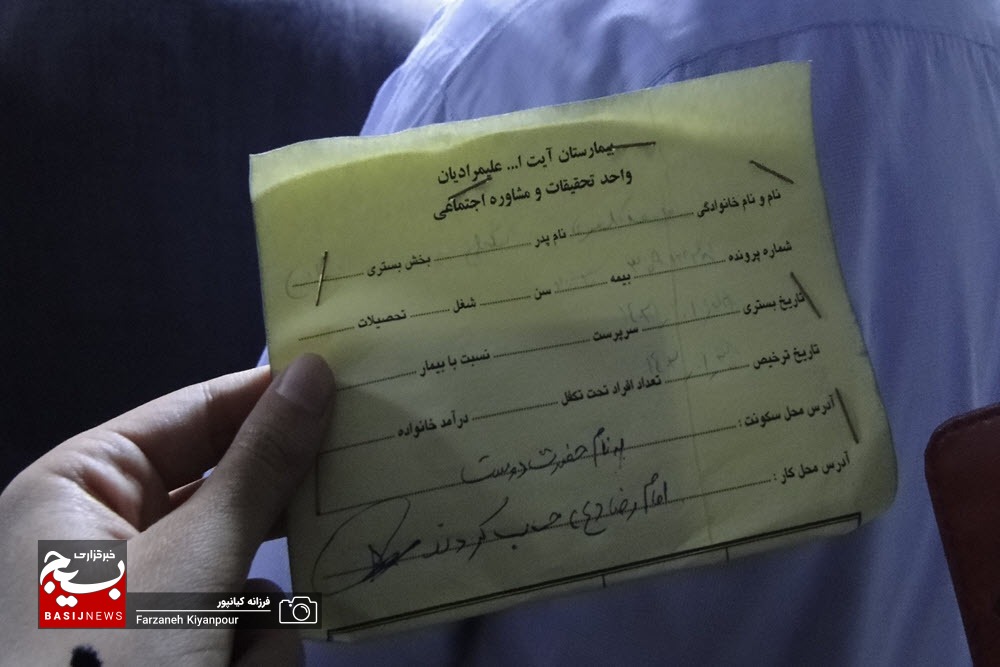 بیمارستان آیت ا... علیمرادیان
واحد تحقیقات و مشاوره اجتماعی
نام و نام خانوادگی نام پدر بخش بستری
شماره پرونده بیمه سن شغل تحصیلات
تاریخ بستری سرپرست نسبت با بیمار
تاریخ ترخیص تعداد افراد تحت تکفل درآمد خانواده
آدرس محل سکونت :
بنام حضرت دوست
آدرس محل کار :
امام رضا (ع) حساب کردند
خبرگزاری
بسیج
BASIJNEWS
فرزانه کیانپور
Farzaneh Kiyanpour